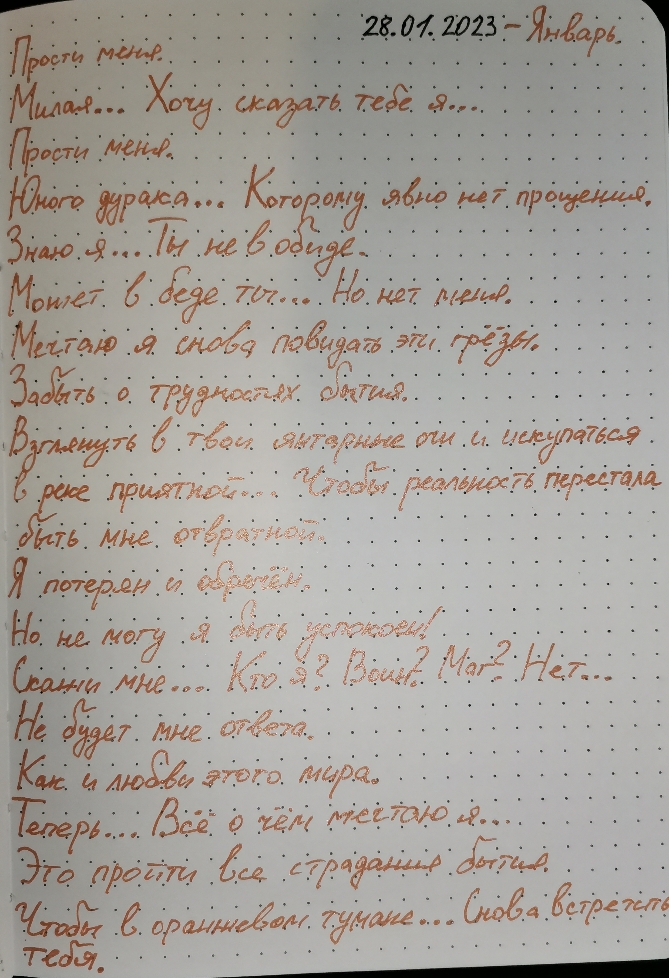 28.01.2023 – Январь.
Прости меня.
Милая... Хочу сказать тебе я...
Прости меня.
Юного дурака... Которому явно нет прощения.
Знаю я... Ты не в обиде.
Может в беде ты... Но нет меня.
Мечтаю я снова повидать эти грёзы.
Забыть о трудностях бытия.
Взглянуть в твои янтарные очи и искупаться
в реке приятной... Чтобы реальность перестала
быть мне отвратной.
Я потерян и обречён.
Но не могу я быть успокоен!
Скажи мне... Кто я? Воин? Маг? Нет...
Не будет мне ответа.
Как и любви этого мира.
Теперь... Всё о чём мечтаю я...
Это пройти все страдания бытия.
Чтобы в оранжевом тумане... Снова встретить
тебя.